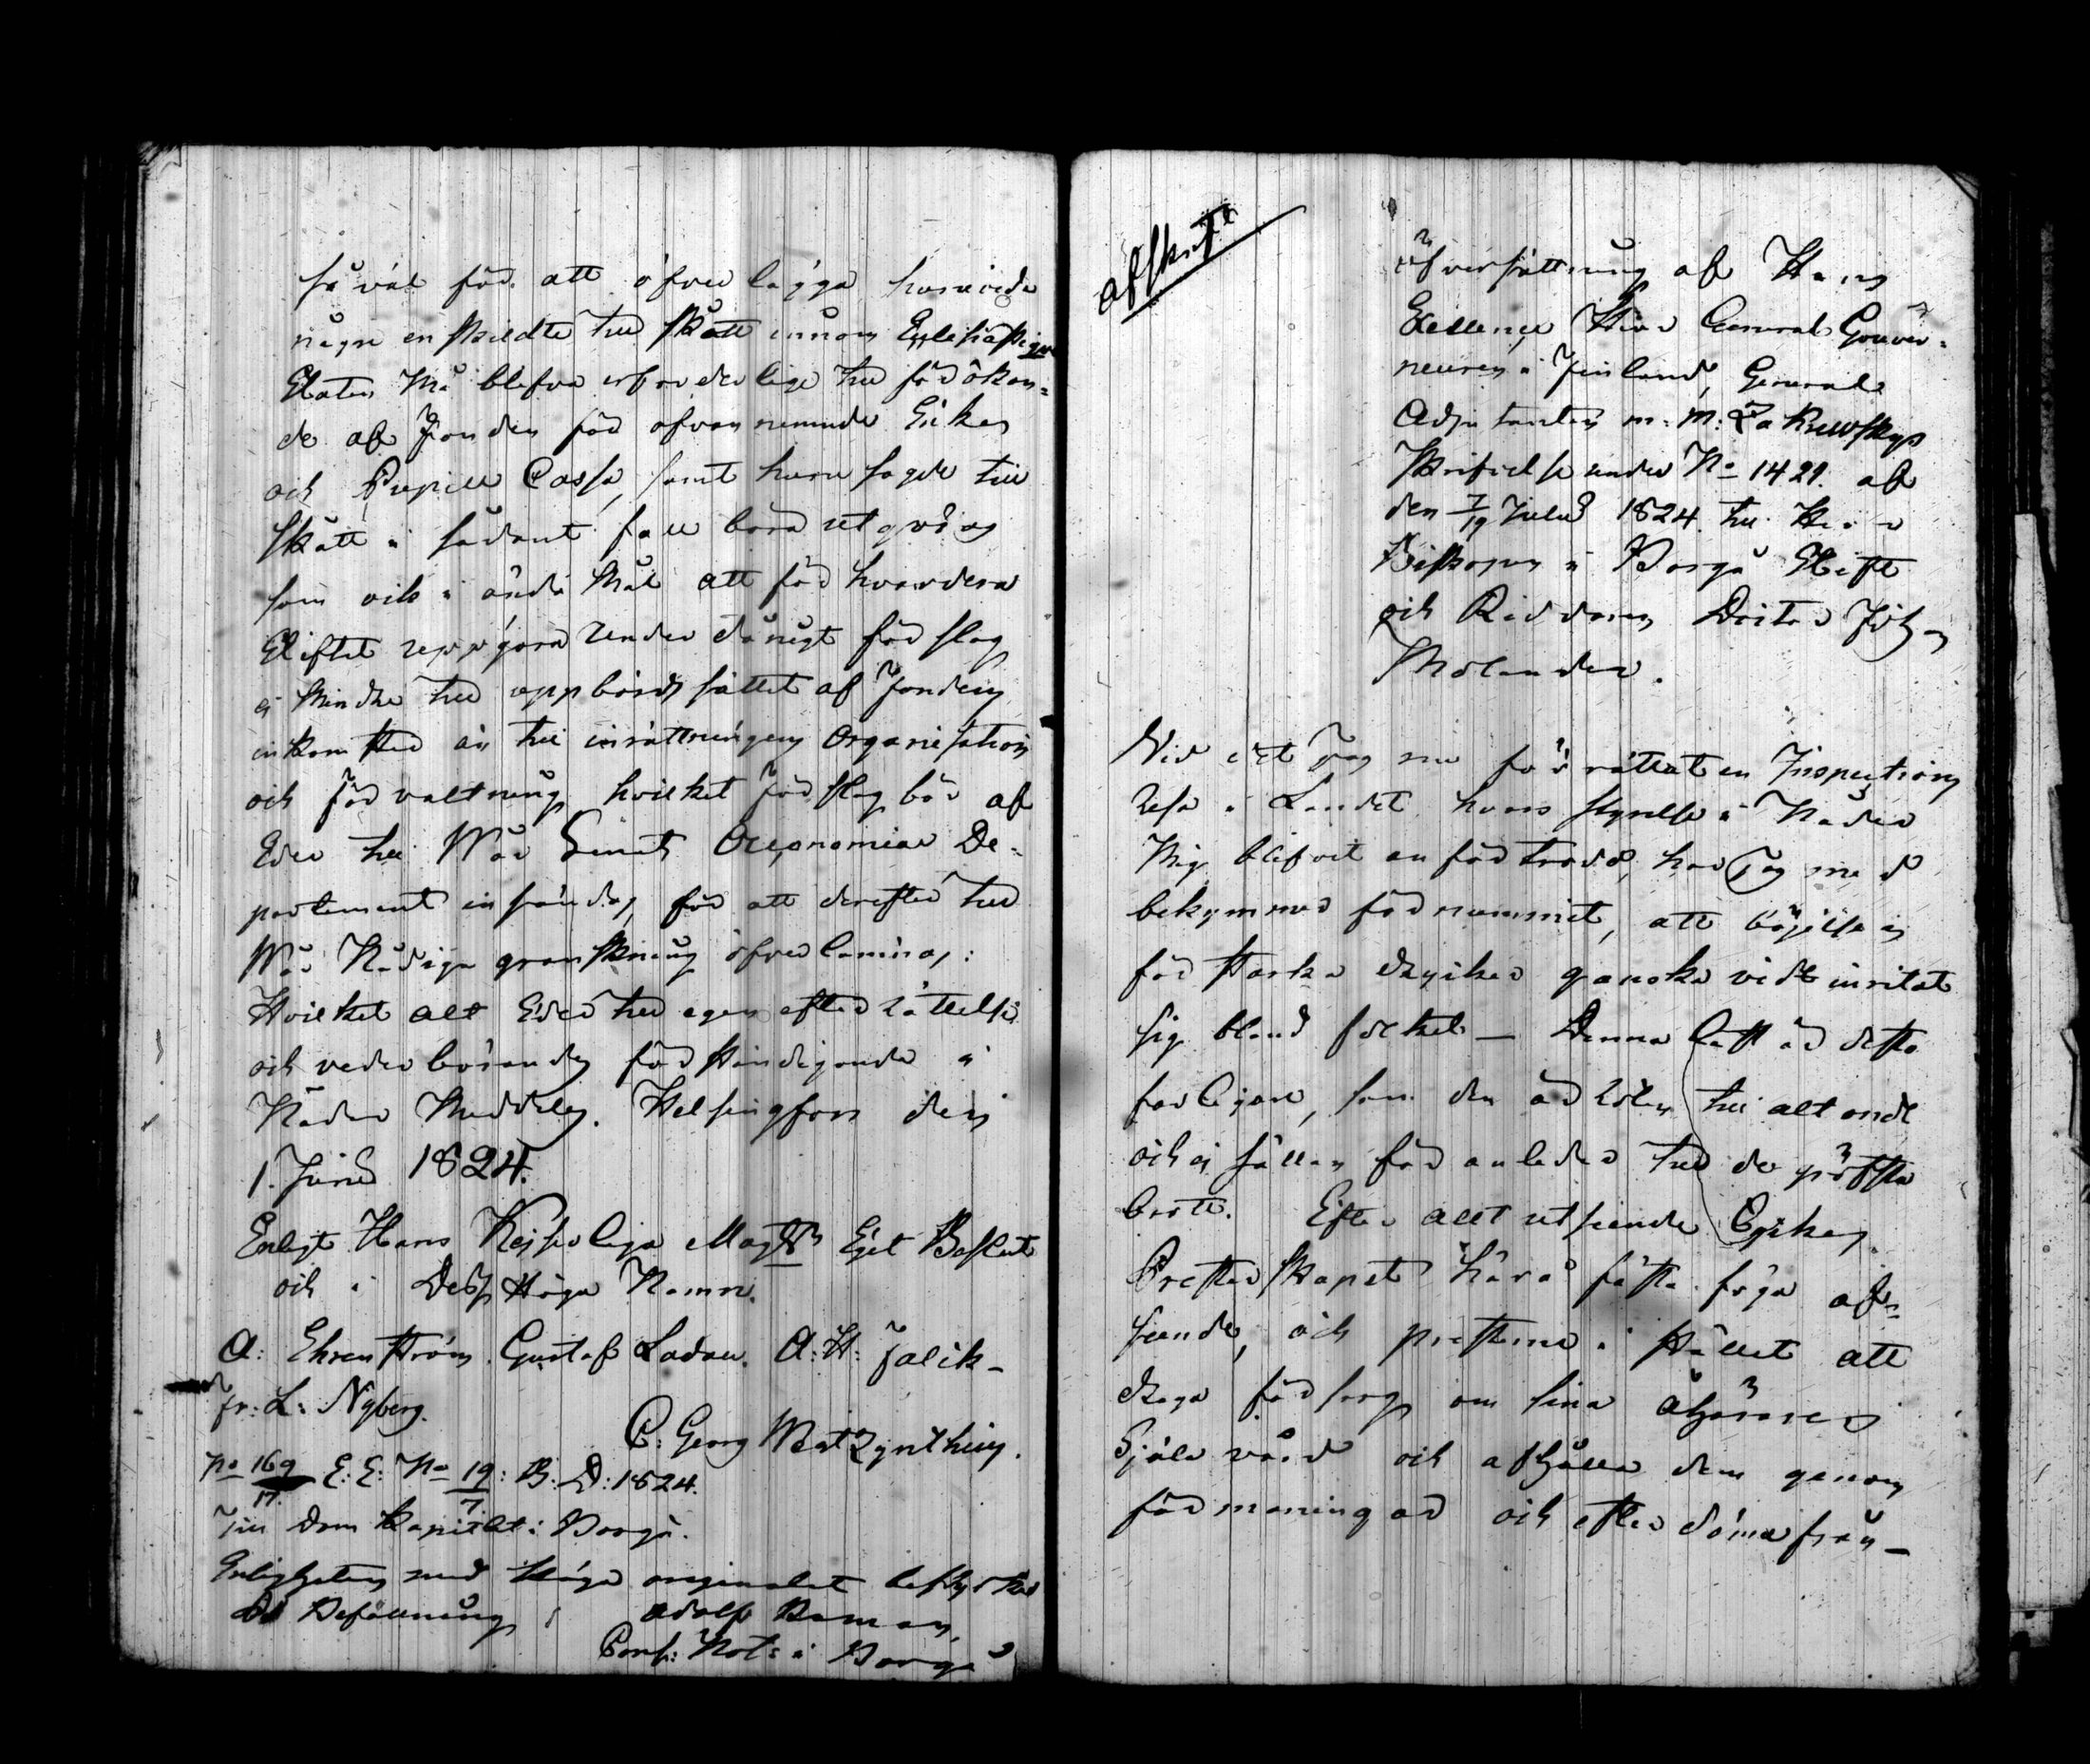 så väl för att öfverlägga huruvida
några enskildte tillskott innom Ecclesiastique
Staten må blefva erforderlige till förökan-
de af Fonden för ofvannemnde Enke
och Pupill Cassa, samt huru sagde till
skott i sådant fall böra utgöras
som ock i ända mål att för hvardera
Stiftet uppgöra underdånigt förslag
ej mindre till uppbördssättet af Fondens
inkomster än till inrättningens Organisation
och förvaltning hvilket förslag bör af
Eder till Wår Senats Oeconomiae De-
partement insändas för att derefter till
Wår Nådiga granskning öfverlemnas:
Hvilket allt Eder till egen efterrättelse
och vederbörandes förständigande i
Nåder Meddelas. Helsingfors den
1. Junii 1824.
Enligt Hans Kejserliga Majts Eget Beslut
och i Dess Höga Namn.
A: Ehrenström. Gustaf Ladau. A: H: Falck
Fr: L: Nyberg.
C: Georg
No 169 E: E: No 19: B: D: 1824.
17. 7
Till Dom Kapitlet i Borgå.
Enligheten med Höga originalet bestyrker
På Befallning; Adolf
Cons: Not: i Borgå
Afskrift
Öfversättning af Hans
Excellence Herr General Gouver-
neuren i Finland, General
Adjutanten m: m: Zakrewskys
Skrifvelse under No 1421. af
den 7/19 Julii 1824 till Herr
Biskopen i Borgå Stift
och Riddaren Doctor Joh
Molander.
Vid det jag nu förrättat en Inspections
resa i Landet hvars styrelse i Nåder
Mig blifvit anförtrodd, har Jag med
bekymmer förnummit, att böjelsen
för starka drycker ganska vidt inritat
sig bland folket — Denna last är desto
farligare, som den är roten till alt ondt
och ej sällan för anleder till de gröfsta
brott. Efter allt utseende
Presterskapet härå fästa föga af-
seende, och presterne i stället att
draga försorg om sina åhörares
Själavård och afhålla dem genom
förmaningar och efterdöme från—